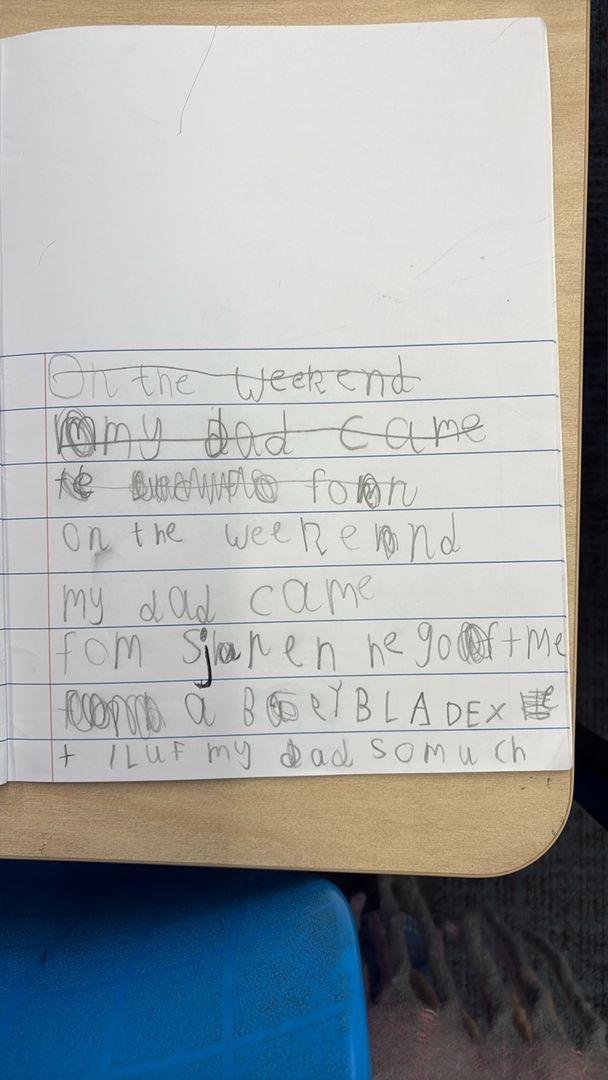 On the weekend
my dad came
te fon
on the weekend
my dad came
fom Sjapen he got me
a BeYBLADEX
+ ILUF my dad somuch